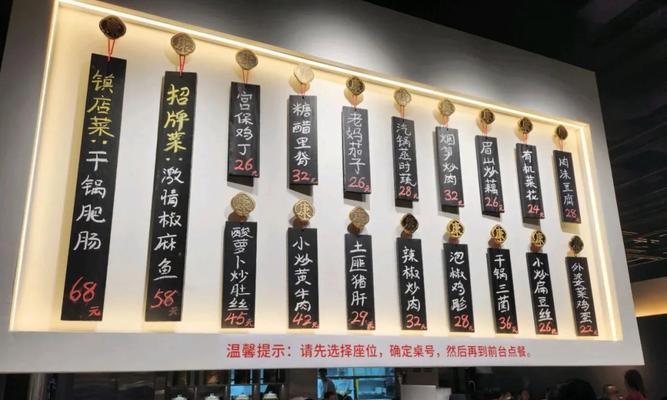 镇店菜:干锅肥肠
68元
招牌菜:激情椒麻鱼
58元
宫保鸡丁
26元
糖醋里脊
32元
老妈茄子
26元
汽锅蒸时蔬
28元
烟笋炒肉
32元
眉山炒藕
26元
有机菜花
24元
肉沫豆腐
28元
酸萝卜炒肚丝
45元
小炒黄牛肉
42元
土匪猪肝
29元
辣椒炒肉
32元
泡椒鸡胗
28元
干锅三菌
36元
小炒扁豆丝
26元
外婆菜鸡蛋
22元
温馨提示：请先选择座位，确定桌号，然后再到前台点餐。